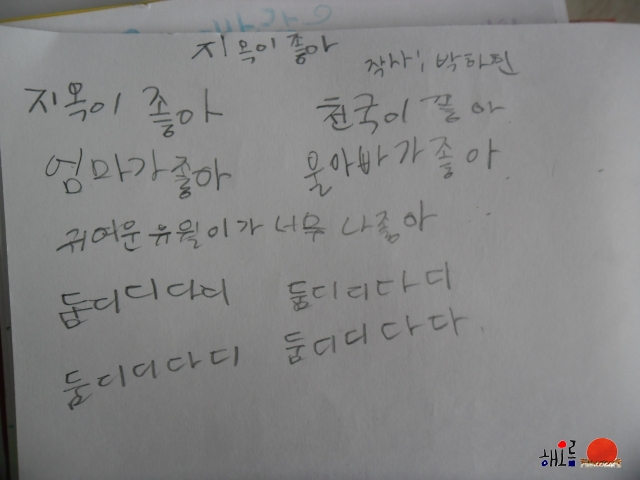 지옥이 좋아
작사: 박하민
지옥이 좋아 천국이 좋아
엄마가 좋아 울아빠가 좋아
귀여운 유월이가 너무 나 좋아
둠디디다디 둠디디다디
둠디디다디 둠디디다다.
해오름